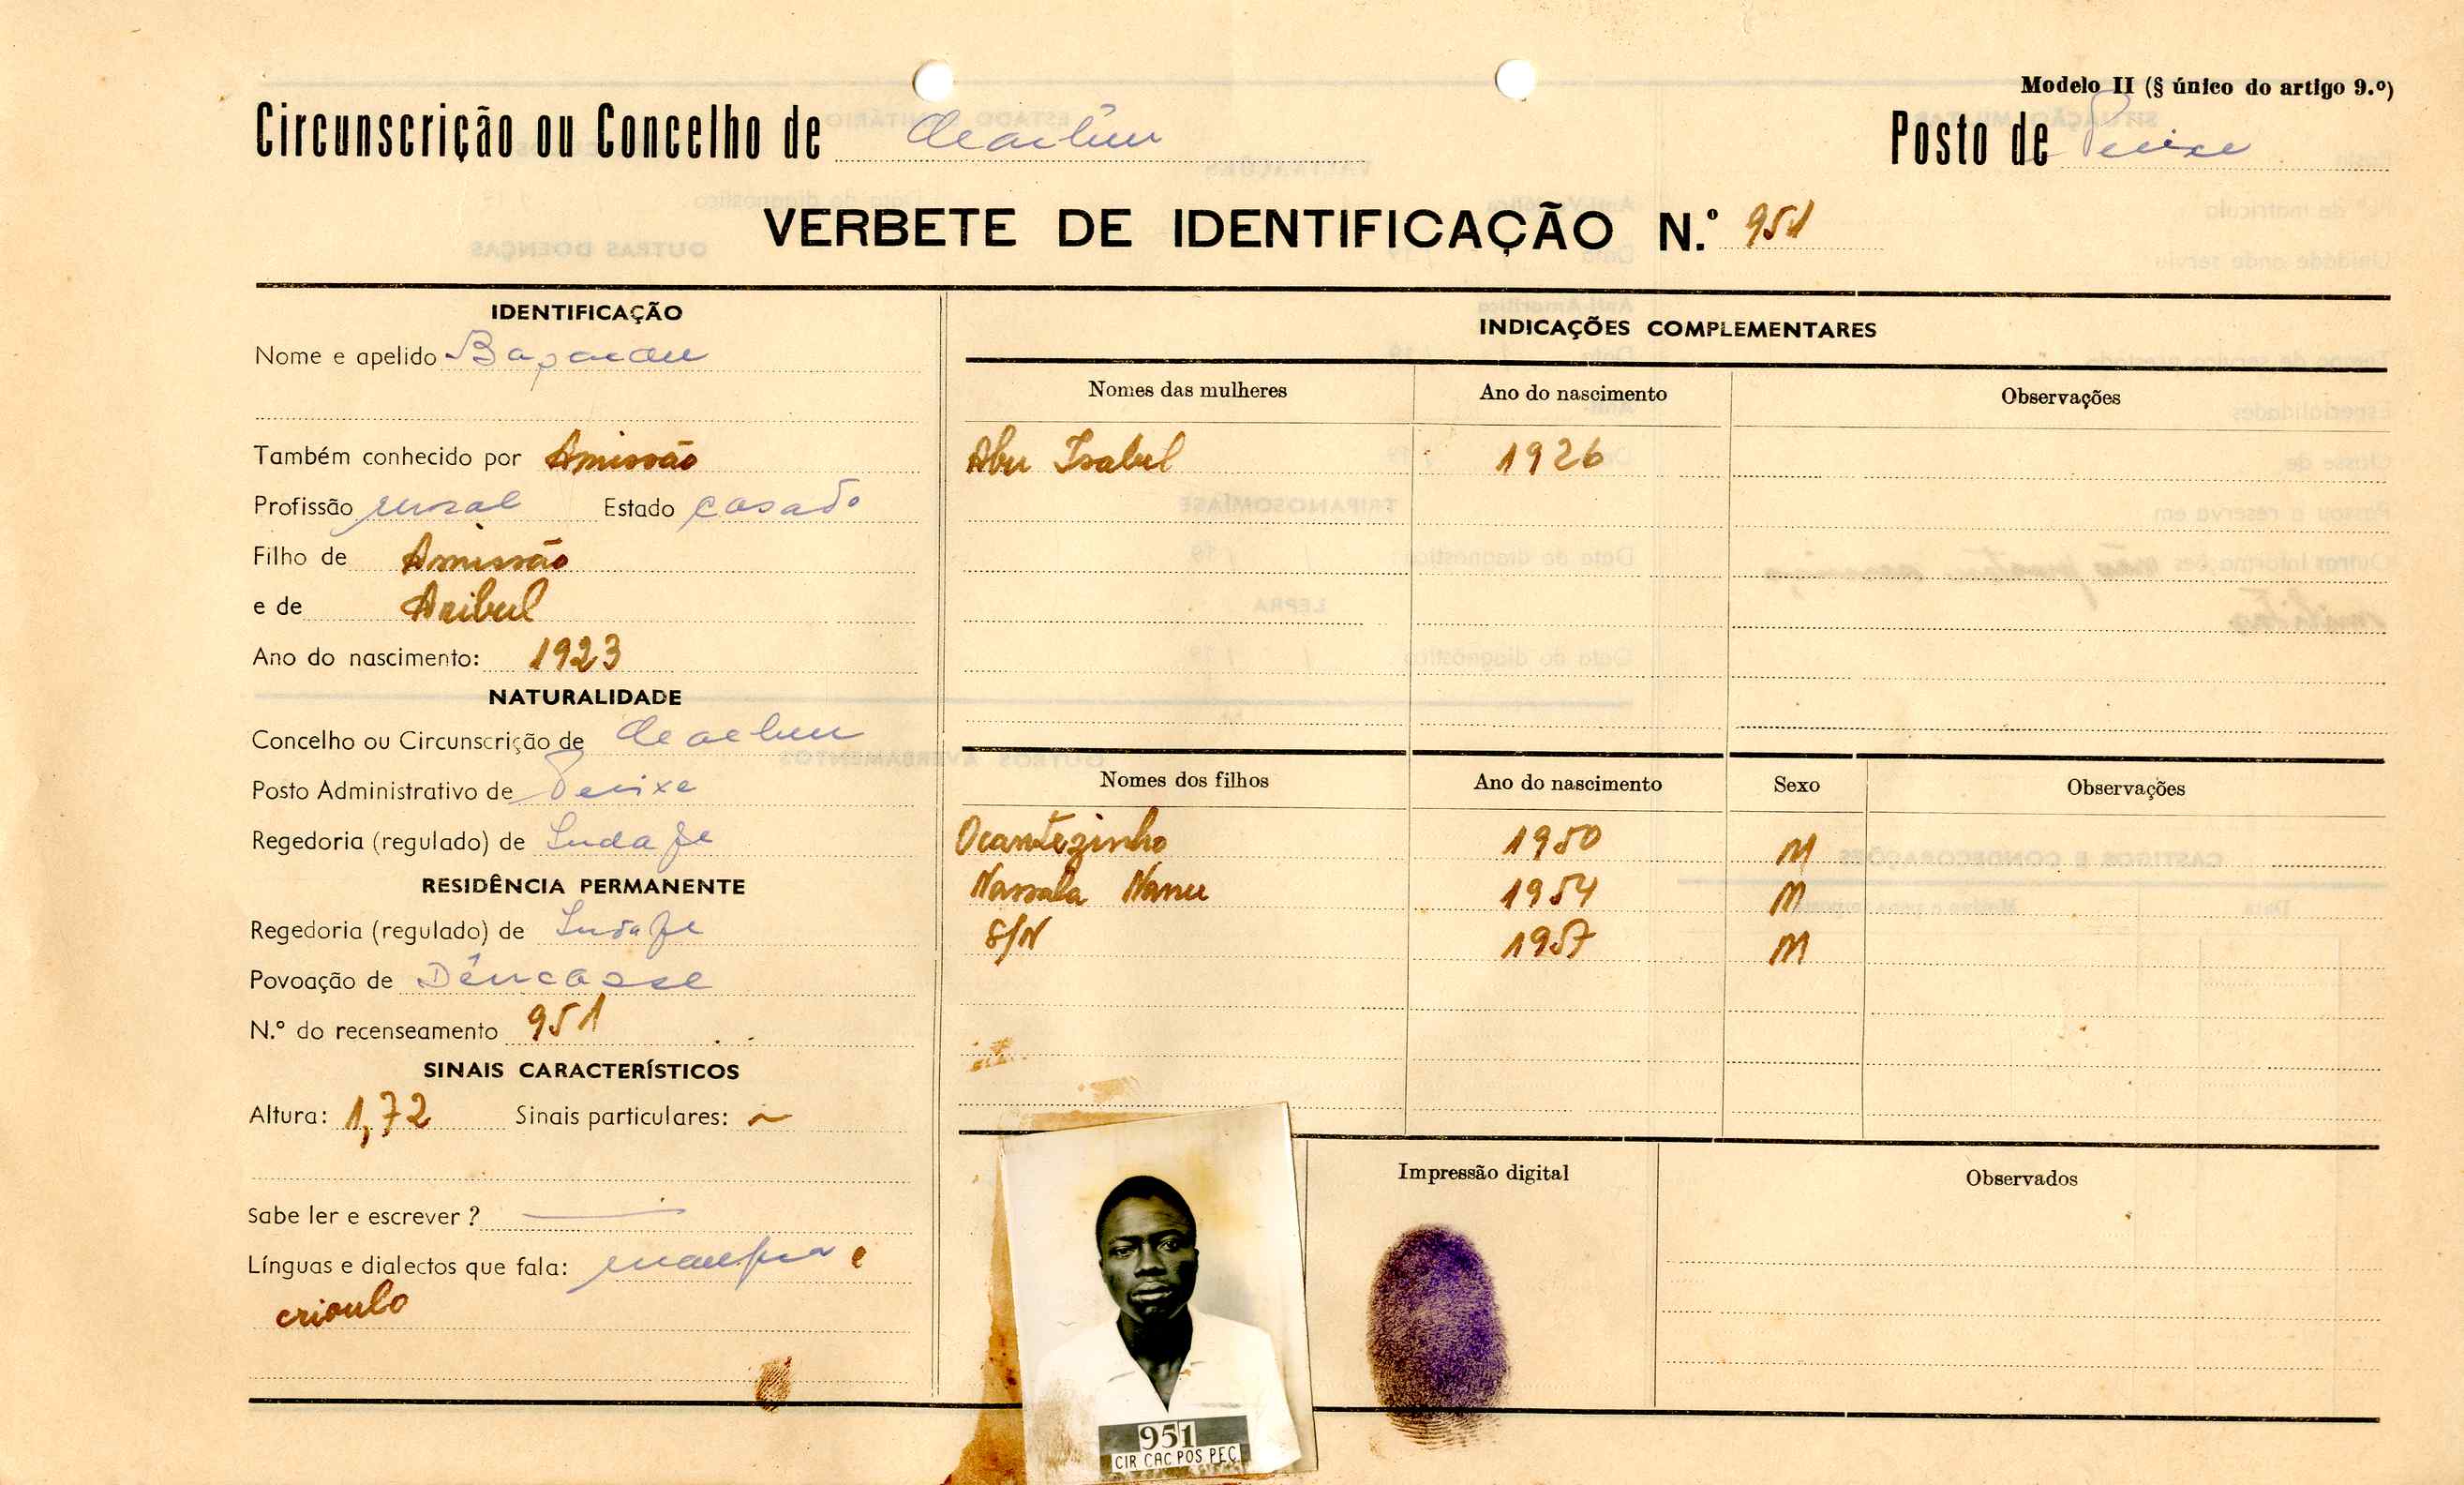 Modelo II (§ único do artigo 9.º)
Circunscrição ou Concelho de Posto de
VERBETE DE IDENTIFICAÇÃO N.º 951
IDENTIFICAÇÃO
Nome e apelido
Também conhecido por Amissão
Profissão rural Estado casado
Filho de Amissão
e de
Ano do nascimento: 1923
NATURALIDADE
Concelho ou Circunscrição de
Posto Administrativo de
Regedoria (regulado) de
RESIDÊNCIA PERMANENTE
Regedoria (regulado) de
Povoação de Dêncasse
N.º do recenseamento 951
SINAIS CARACTERÍSTICOS
Altura: 1,72 Sinais particulares: ~
Sabe ler e escrever ? —
Línguas e dialectos que fala: e
crioulo
INDICAÇÕES COMPLEMENTARES
Nomes das mulheres Ano do nascimento Observações
Isabel 1926
Nomes dos filhos Ano do nascimento Sexo Observações
Ocantezinho 1950 M
Nassala 1954 M
S/N 1957 M
Impressão digital Observados
951
CIR CAC POS PEC